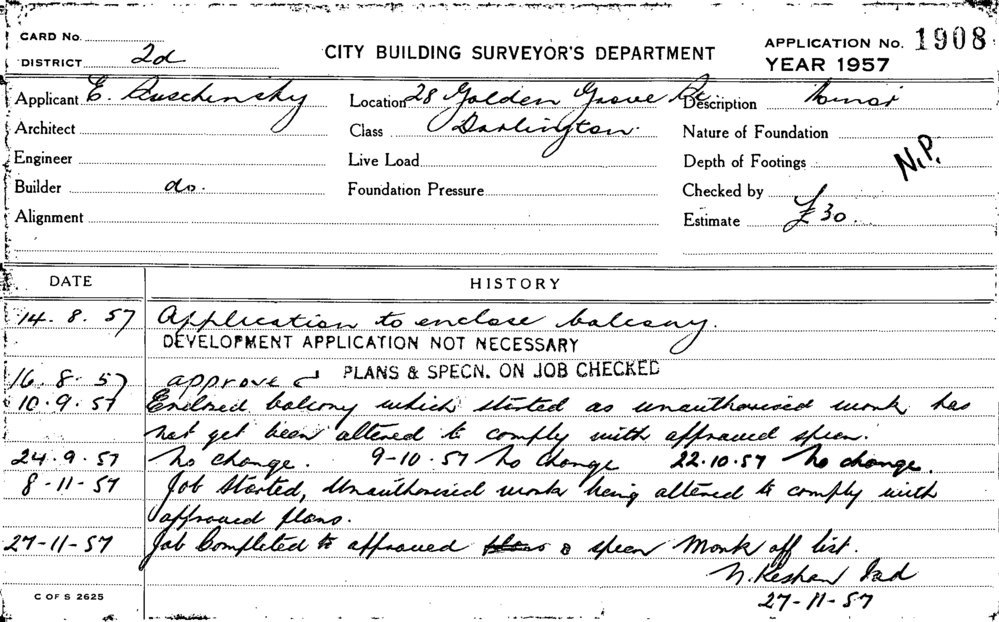 CARD No.
DISTRICT 2d
CITY BUILDING SURVEYOR'S DEPARTMENT
APPLICATION No. 1908
YEAR 1957
Applicant E. Ruschinsky
Location 28 Golden Grove St
Description minor
Architect
Class Darlington.
Nature of Foundation
Engineer
Live Load
Depth of Footings
N.P.
Builder do.
Foundation Pressure
Checked by
Alignment
Estimate £30.
DATE HISTORY
14. 8. 57 Application to enclose balcony.
DEVELOPMENT APPLICATION NOT NECESSARY
16. 8. 57 approved PLANS & SPECN. ON JOB CHECKED
10. 9. 57 Enclosed balcony which started as unauthorised work has
not yet been altered to comply with approved specn.
24. 9. 57 No change. 9-10. 57 No change 22.10.57 No change.
8-11-57 Job Started, Unauthorised work being altered to comply with
approved plans.
27-11-57 Job Completed to approved & specn Mark off list.
N. Keshan
27-11-57
C OF S 2625